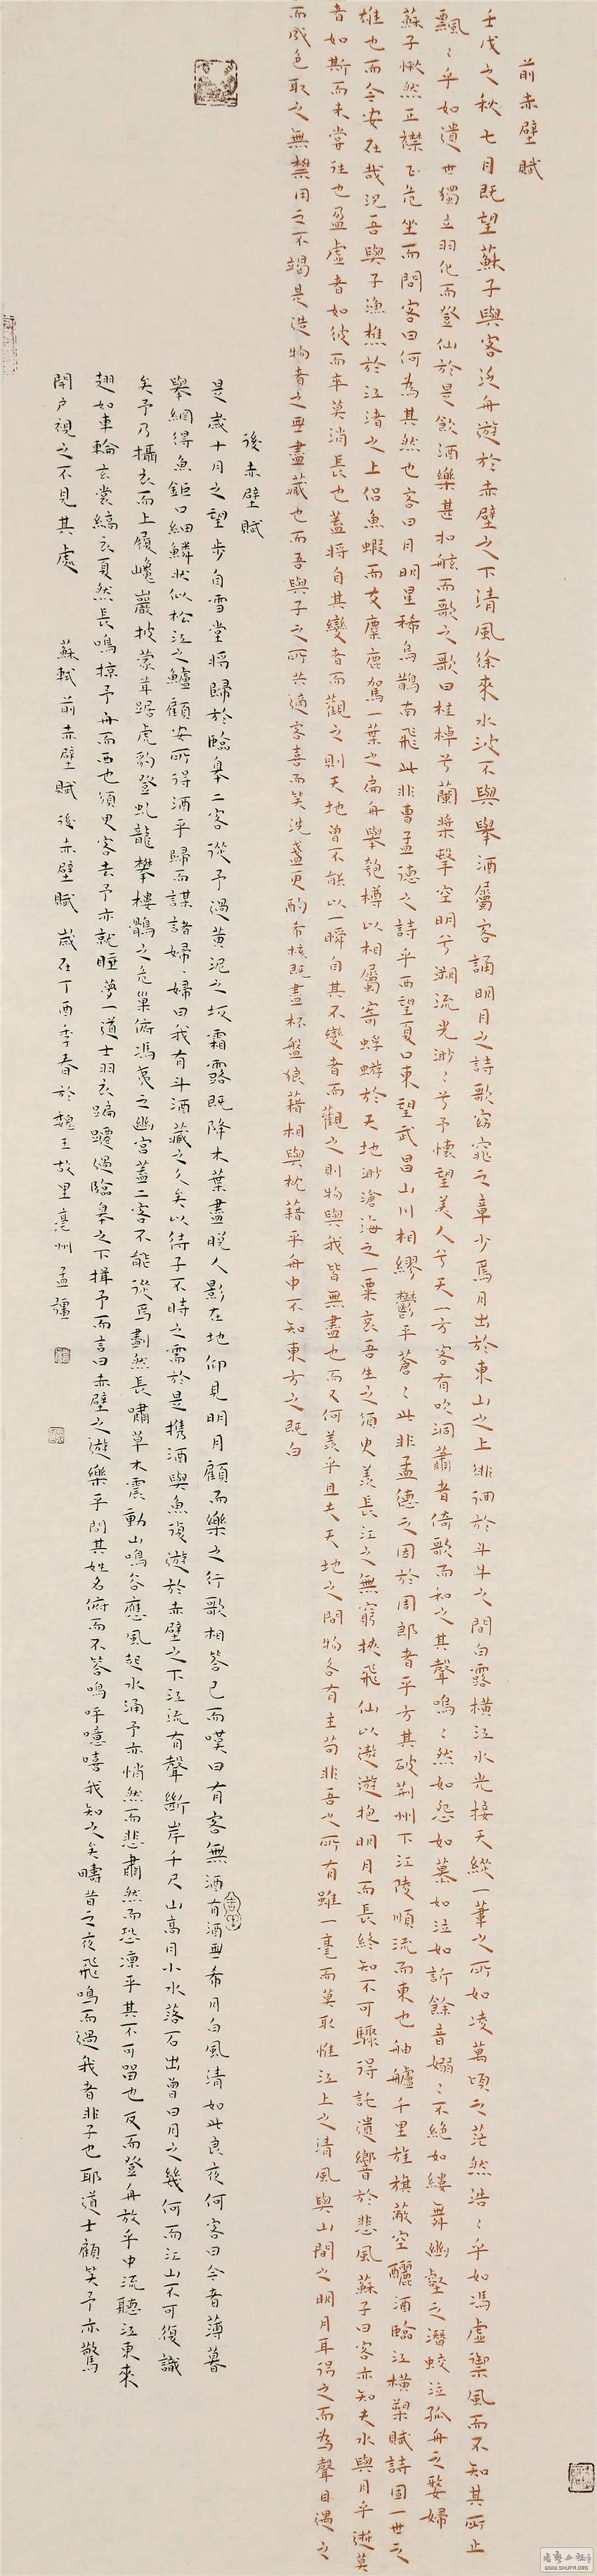 前赤壁賦
壬戌之秋七月既望蘇子與客泛舟遊於赤壁之下清風徐來水波不興舉酒屬客誦明月之詩歌窈窕之章少焉月出於東山之上徘徊於斗牛之間白露橫江水光接天縱一葦之所如凌萬頃之茫然浩〻乎如馮虛禦風而不知其所止
飄〻乎如遺世獨立羽化而登仙於是飲酒樂甚扣舷而歌之歌曰桂棹兮蘭槳擊空明兮溯流光渺〻兮予懷望美人兮天一方客有吹洞蕭者倚歌而和之其聲嗚〻然如怨如慕如泣如訴餘音嫋〻不絕如縷舞幽壑之潛蛟泣孤舟之嫠婦
蘇子愀然正襟危坐而問客曰何為其然也客曰月明星稀烏鵲南飛此非曹孟德之詩乎西望夏口東望武昌山川相繆鬱乎蒼〻此非孟德之困於周郎者乎方其破荊州下江陵順流而東也舳艫千里旌旗蔽空釃酒臨江橫槊賦詩固一世之
雄也而今安在哉況吾與子漁樵於江渚之上侶魚蝦而友麋鹿駕一葉之扁舟舉匏樽以相屬寄蜉蝣於天地渺滄海之一粟哀吾生之須臾羨長江之無窮挾飛仙以遨遊抱明月而長終知不可驟得託遺響於悲風蘇子曰客亦知夫水與月乎逝
者如斯而未嘗往也盈虛者如彼而卒莫消長也蓋將自其變者而觀之則天地曾不能以一瞬自其不變者而觀之則物與我皆無盡也而又何羨乎且夫天地之間物各有主苟非吾之所有雖一毫而莫取惟江上之清風與山間之明月耳得之而為聲目遇之
而成色取之無禁用之不竭是造物者之無盡藏也而吾與子之所共適客喜而笑洗盞更酌肴核既盡杯盤狼藉相與枕藉乎舟中不知東方之既白
後赤壁賦
是歲十月之望步自雪堂將歸於臨皋二客從予過黃泥之坂霜露既降木葉盡脫人影在地仰見明月顧而樂之行歌相答已而嘆曰有客無酒有酒無肴月白風清如此良夜何客曰今者薄暮
舉網得魚鉅口細鱗狀似松江之鱸顧安所得酒乎歸而謀諸婦〻曰我有斗酒藏之久矣以待子不時之需於是攜酒與魚復遊於赤壁之下江流有聲斷岸千尺山高月小水落石出曾日月之幾何而江山不可復識
矣予乃攝衣而上履巉巖披蒙茸踞虎豹登虬龍攀棲鶻之危巢俯馮夷之幽宮蓋二客不能從焉劃然長嘯草木震動山鳴谷應風起水涌予亦悄然而悲肅然而恐凜乎其不可留也反而登舟放乎中流聽江東來
翅如車輪玄裳縞衣戛然長鳴掠予舟而西也須臾客去予亦就睡夢一道士羽衣蹁躚過臨皋之下揖予而言曰赤壁之遊樂乎問其姓名俯而不答嗚呼噫嘻我知之矣疇昔之夜飛鳴而過我者非子也耶道士顧笑予亦驚
開戶視之不見其處
蘇軾前赤壁賦後赤壁賦歲在丁酉季春於魏王故里亳州孟疆
WWW.SHUFR.ORG